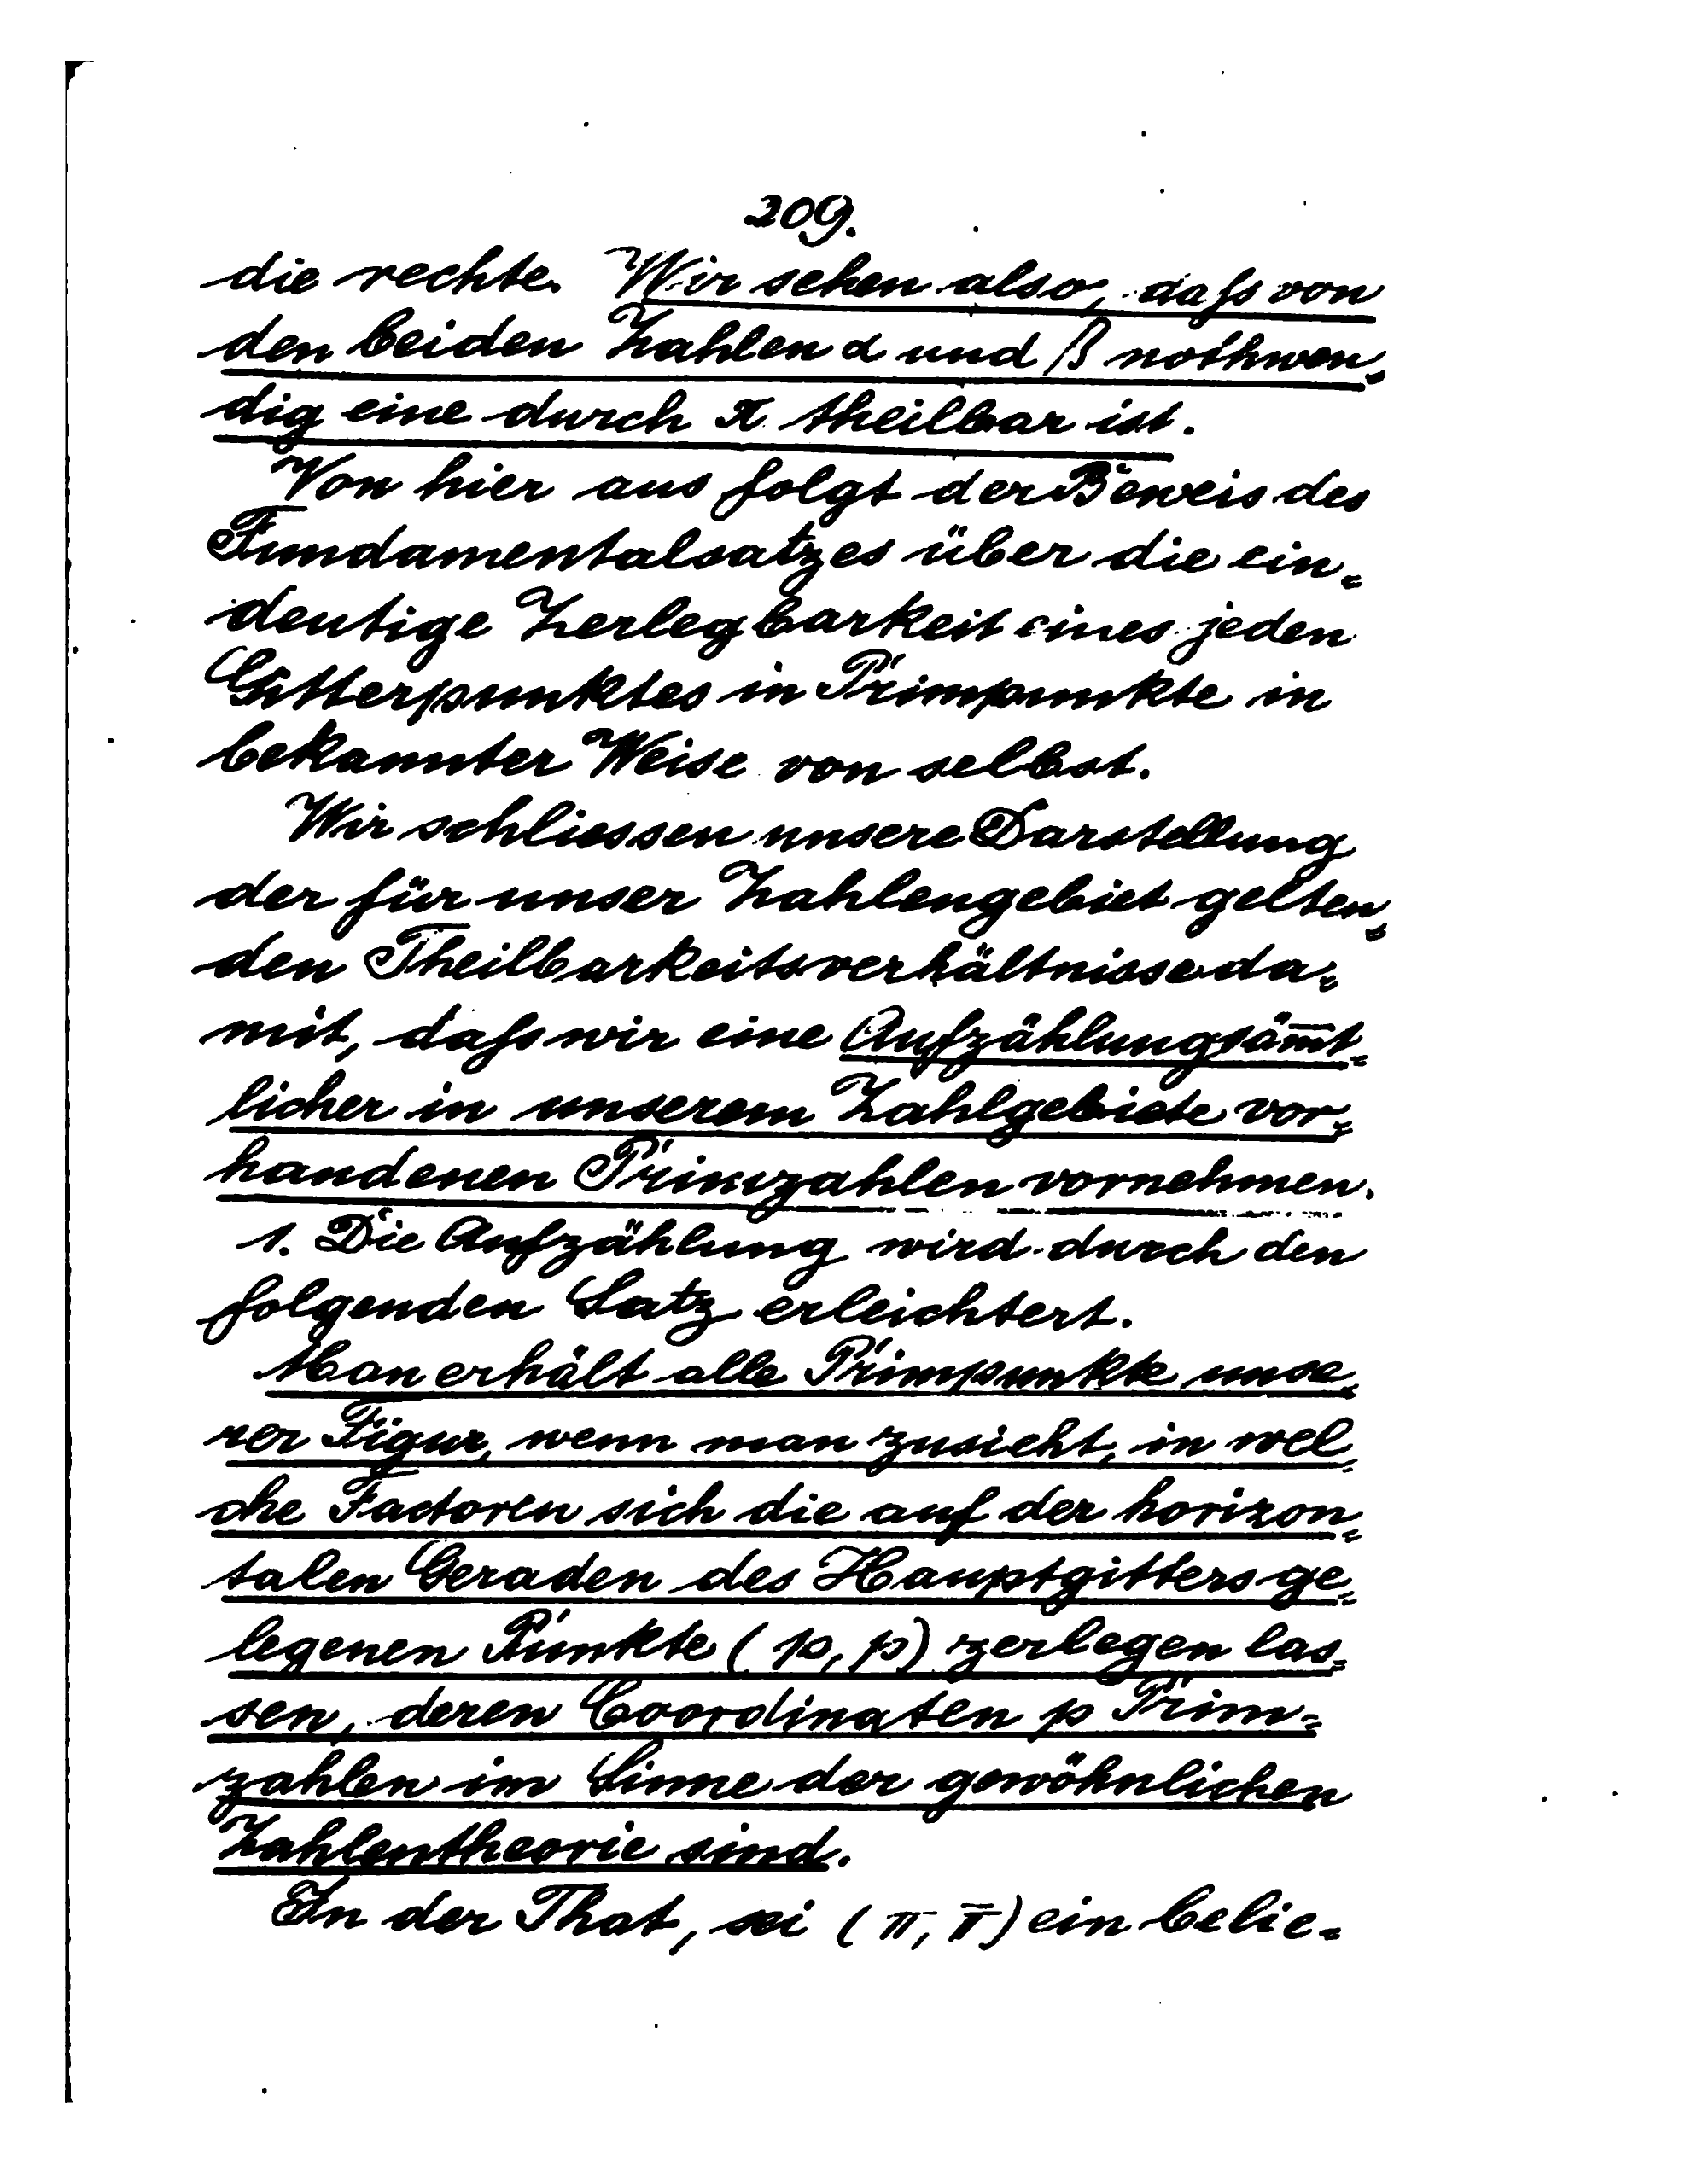 209.
die rechte. Wir sehen also, daſs von
den beiden Zahlen α und β nothwen=
dig eine durch π theilbar ist.
Von hier aus folgt der Beweis des
Fundamentalsatzes über die ein=
deutige Zerlegbarkeit eines jeden
Gitterpunktes in Primpunkte in
bekannter Weise von selbst.
Wir schliessen unsere Darstellung
der für unser Zahlengebiet gelten=
den Theilbarkeitsverhältnisse da=
mit, daſs wir eine Aufzählung säm̅t=
licher in unserem Zahlgebiete vor=
handenen Primzahlen vornehmen.
1. Die Aufzählung wird durch den
folgenden Satz erleichtert.
Man erhält alle Primpunkte unse=
rer Figur, wenn man zusieht, in wel=
che Factoren sich die auf der horizon=
talen Geraden des Hauptgitters ge=
legenen Punkte (p, p) zerlegen las=
sen, deren Coordinaten p Prim=
zahlen im Sinne der gewöhnlichen
Zahlentheorie sind.
In der That, sei (π, π̅) ein belie=